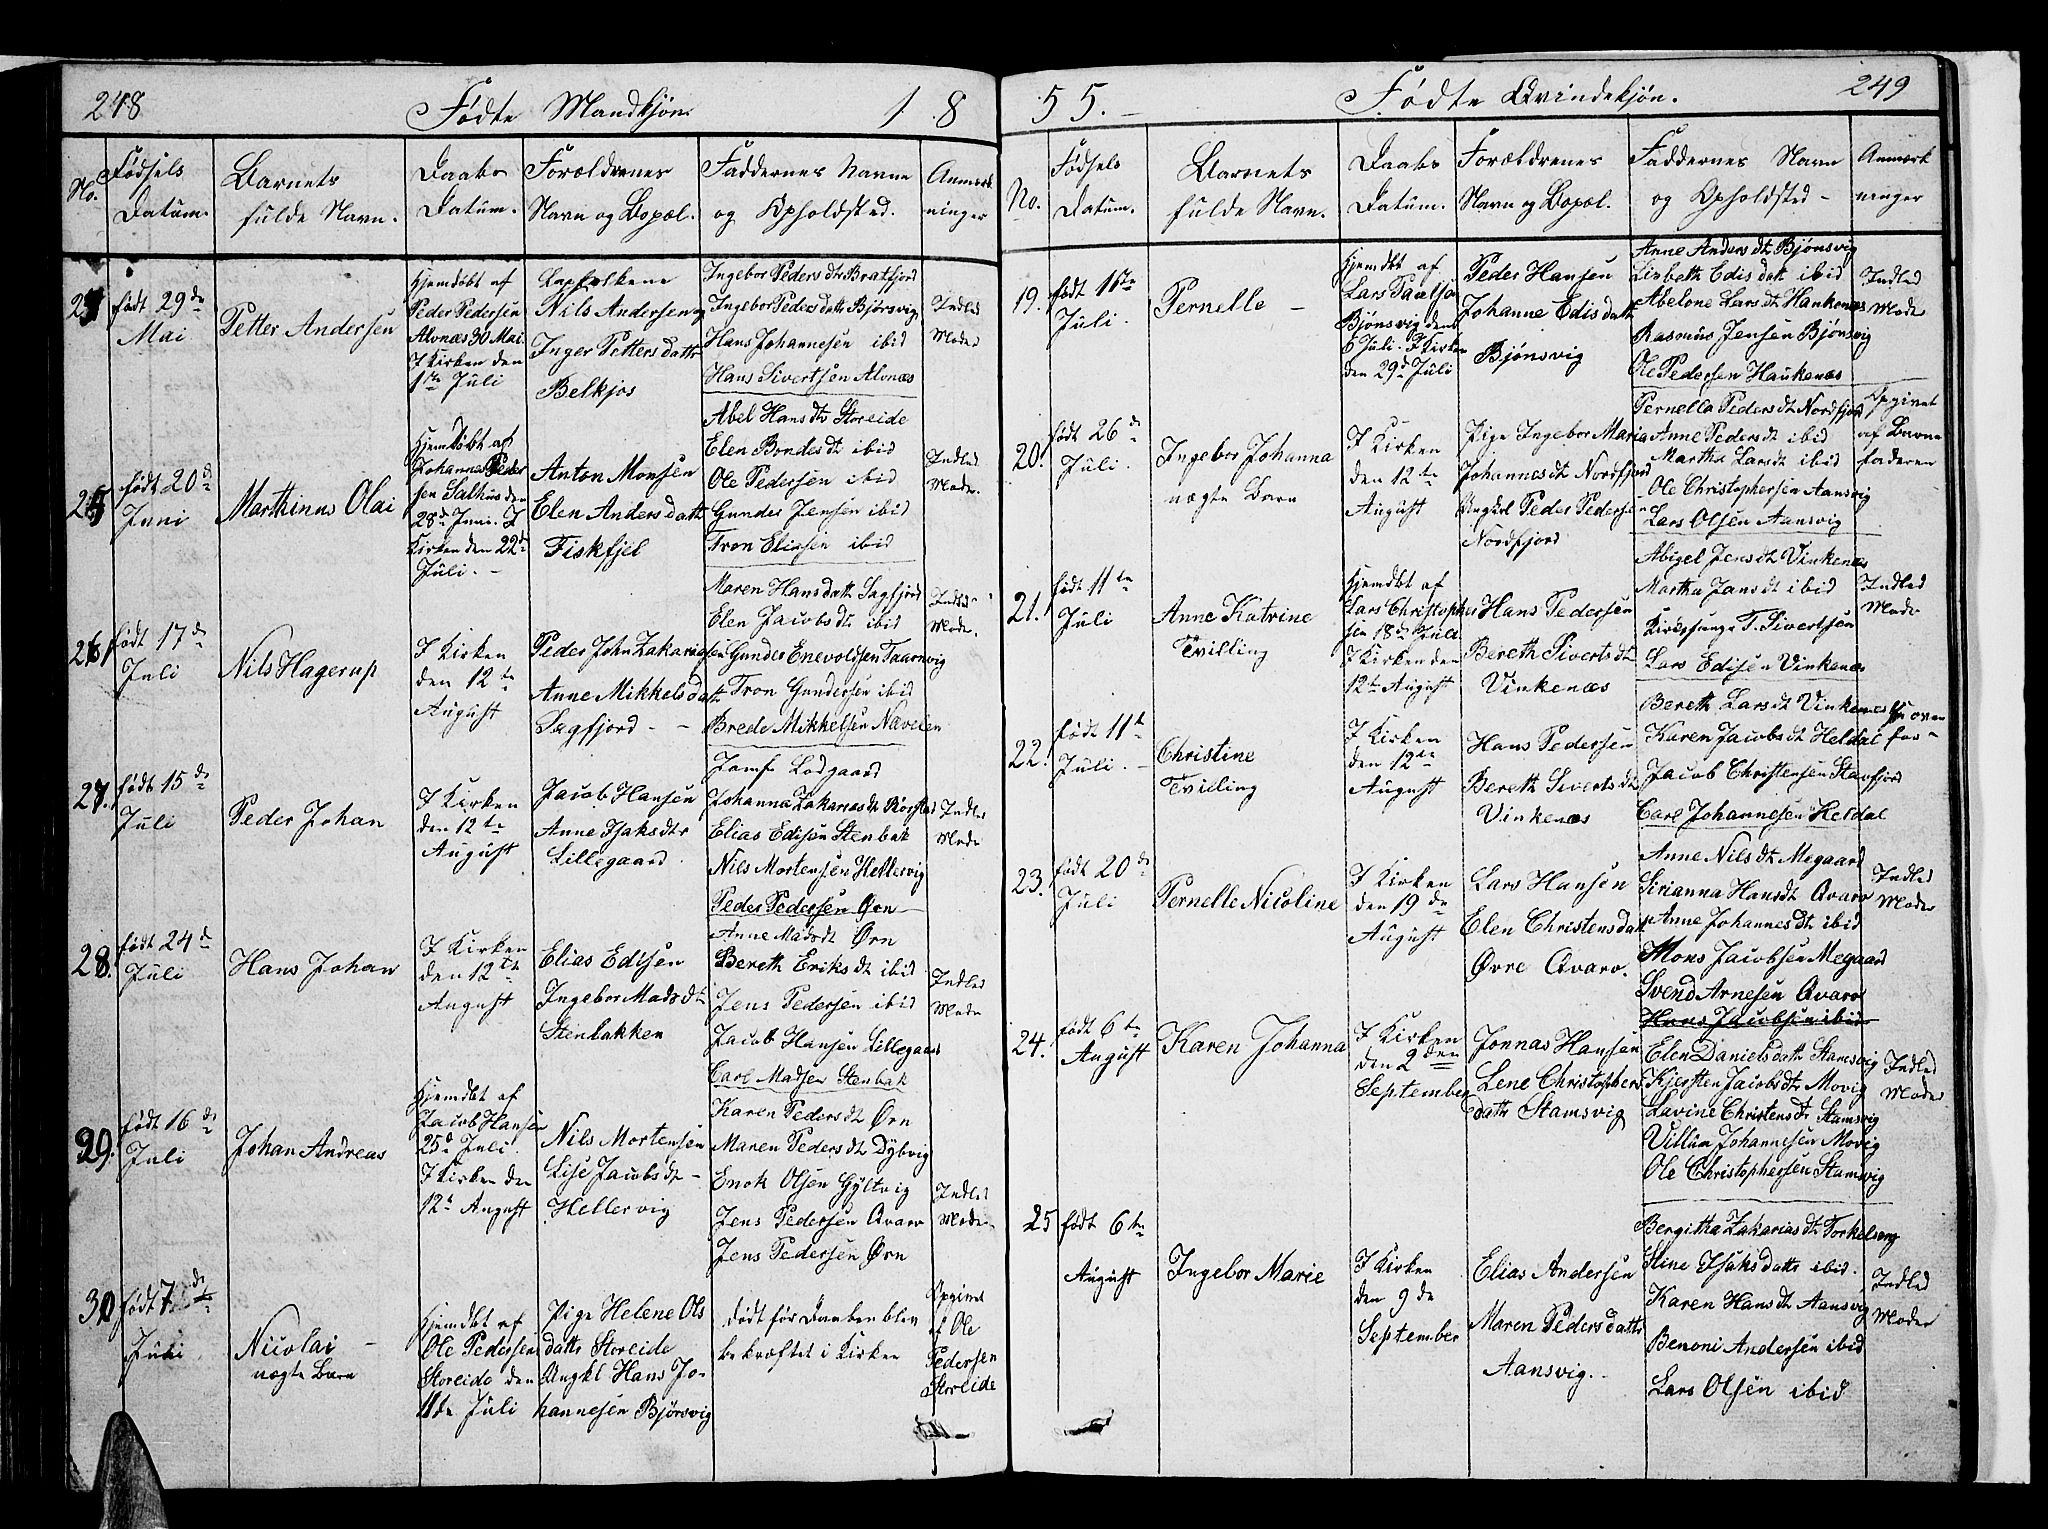 248 Fødte Mandkjøn 1 8
No.
Fødsels
Datum.
Barnets
fulde Navn.
Daabs
Datum.
Forældrenes
Navn og Bopæl.
Faddernes Navne
og Opholdsted.
Anmærk
ninger
født 29de
Mai
Petter Andersen
Hjemdøbt af
Peder Pedersen
Alvnæs 30 Mai.
I Kirken den
1ste Juli
Nils Andersen og
Inger Petters datter
Belkjos
Ingebor Peders dtr Bratfjord
Ingebor Peders datt Bjørsvig
Hans Johannesen ibid
Hans Sivertsen Alvnæs
Indled
Moder
født 20de
Juni
Marthinus Olai
Hjemdøbt af
Johannes Peder
sen Salhus den
28de Juni. I
Kirken den 22de
Juli. -
Anton Monsen
Elen Anders datt
Fiskfjel
Abel Hans dtr Storeide
Elen Bondes dt ibid
Ole Pedersen ibid
Gunder Jensen ibid
Tron Eliasen ibid
Indled
Moder
26
født 17de
Juli
Nils Hagerup
I Kirken
den 12te
August
Peder John Zakariasen
Anne Mikkels datt
Sagfjord - -
Maren Hans datt Sagfjord
Elen Jacobs dt ibid
Gunder Enevoldsen Taarnvig
Tron Gundersen ibid
Brede Mikkelsen Nævelen
Indled
Mode.
27.
født 15de
Juli
Peder Johan
I Kirken
den 12te
August
Jacob Hansen
Anne Isaks dtr
Lillegaard
Jomfr Lodgaard
Johanna Zakarias dt Rørstad
Elias Edisen Stenbak
Nils Mortensen Hellervig
Peder Pedersen Ørn
Indled
Mode
28.
født 24de
Juli
Hans Johan
I Kirken
den 12te
August
Elias Edisen
Ingebor Mads dt
Stenbakken
Anne Mads dt Ørn
Bereth Eriks dt ibid
Jens Pedersen ibid
Jacob Hansen Lillegaard
Carl Madsen Stenbak
Indled
Mode
29.
født 16de
Juli
Johan Andreas
Hjemdbt af
Jacob Hansen
25de Juli.
I Kirken den
12te August
Nils Mortensen
Lise Jacobs dt -
Hellervig
Karen Peders dt Ørn
Maren Peders dt Dybvig
Enok Olsen Gyltvig
Jens Pedersen Qvarv
Jens Pedersen Ørn
Indled
Moder
30
født 7de
Juli
Nicolai -
uægte Barn
Hjemdbt af
Ole Pedersen
Storeide den
11de Juli
Pige Helene Ols
datt Storeide
Ungkl Hans Jo-
hannesen Bjørsvig
dødt før Daaben blev
bekræftet i Kirken
Opgivet
af Ole
Pedersen
Storeide
55. - Fødte Qvindekjøn. 249
No.
Fødsels
Datum.
Barnets
fulde Navn.
Daabs
Datum.
Forældrenes
Navn og Bopæl.
Faddernes Navn
og Opholdsted -
Anmærk
ninger
19.
født 1ste
Juli.
Pernelle -
Hjemdbt af
Lars Paulsen
Bjønsvig den
6 Juli. I Kirken
den 29de Juli
Peder Hansen
Johanne Edis datt
Bjønsvig
Anne Anders dt Bjønsvig
Lisbeth Edis datt ibid
Abelone Lars dt Haukenæs
Rasmus Jensen Bjønsvig
Ole Pedersen Haukenæs
Indled
Mode
20.
født 26de
Juli.
Ingebor Johanna
uægte Barn
I Kirken
den 12te
August
Pige Ingebor Maria
Johannes dt Nordfjord
Ungkl Peder Pedersen
Nordfjord
Pernella Peders dt Nordfjord
Anne Peders dt ibid
Martha Lars dt ibid
Ole Christophersen Aansvig
Lars Olsen Aansvig
Opgivet
af Barne
faderen
21.
født 11te
Juli
Anne Katrine
Tvilling
Hjemdbt af
Lars Christopher
sen 18de Juli
I Kirken den
12te August
Hans Pedersen
Bereth Siverts dt
Vinkenæs
Abigel Jens dt Vinkenæs
Martha Jans dt ibid
Kirkesanger T. Sivertsen
Lars Edisen Vinkenæs
Indled
Mode
22.
født 11te
Juli. -
Christine
Tvilling
I Kirken
den 12te
August
Hans Pedersen
Bereth Siverts dt
Vinkenæs
Bereth Lars dt Vinkenæs
Karen Jacobs dt Heldal
Jacob Christensen Stavfjord
Carl Johannesen Heldal
Se oven
for -
23.
født 20de
Juli
Pernelle Nicoline
I Kirken
den 19de
August
Lars Hansen
Elen Christens datt
Øvre Qvarv.
Anne Nils dt Megaard
Sirianna Hans dt Qvarv
Anne Johannes dt ibid
Mons Jacobsen Megaard
Svend Arnesen Qvarv
Hans Jacobsen ibid
Indled
Moder
24.
født 6te
August
Karen Johanna
I Kirken
den 2den
September
Jonnas Hansen
Lene Christophers
datt Stamsvig
Elen Daniels datt Stamsvig
Kjersten Jacobs dt Movig
Lavine Christens dt Stamsvig
Villum Johannesen Movig
Ole Christophersen Stamsvig
Indled
Moder
25
født 6te
August
Ingebor Marie
I Kirken
den 9de
September
Elias Andersen
Maren Peders datt
Aansvig.
Bergitha Zakarias dt Torkelseng
Stine Isaks datt ibid.
Karen Hans dt Aansvig
Benoni Andersen ibid
Lars Olsen ibid
Indled
Moder